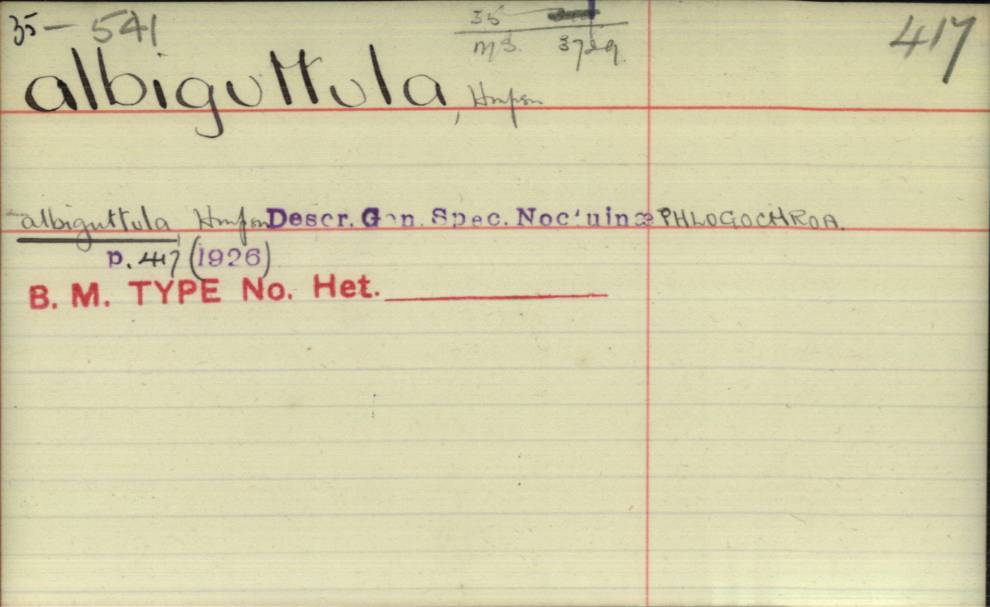 35 - 541
35
MS. 3729
417
albiguttula, Hmpsn
albiguttula, Hmpsn Descr. Gen. Spec. Noctuinæ PHLOGOCHROA.
p. 417 (1926)
B. M. TYPE No. Het.